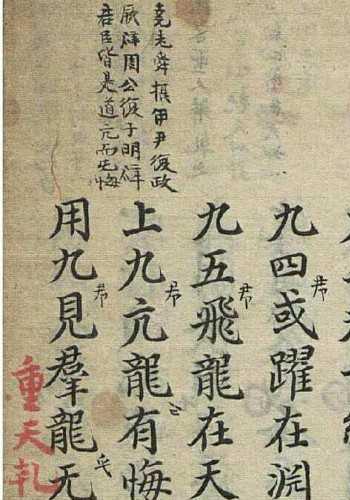 堯老舜攝伊尹復政
厥辟周公復子明辟
君臣皆是道亢而无悔
九四或躍在渊
九五飛龍在天
上九亢龍有悔
用九見羣龍无
重天乹